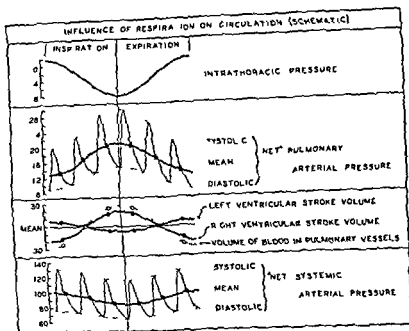 INFLUENCE OF RESPIRA ION ON CIRCULATION (SCHEMATIC)
INSPIRAT ON EXPIRATION
0
4
8
INTRATHORACIC PRESSURE
28
24
20
16
12
8
SYSTOL C
MEAN
DIASTOLIC
"NET" PULMONARY
ARTERIAL PRESSURE
30
MEAN
30
LEFT VENTRICULAR STROKE VOLUME
R GHT VENTRICULAR STROKE VOLUME
VOLUME OF BLOOD IN PULMONARY VESSELS
140
120
100
80
60
SYSTOLIC
MEAN
DIASTOLIC
"NET SYSTEMIC
ARTERIAL PRESSURE